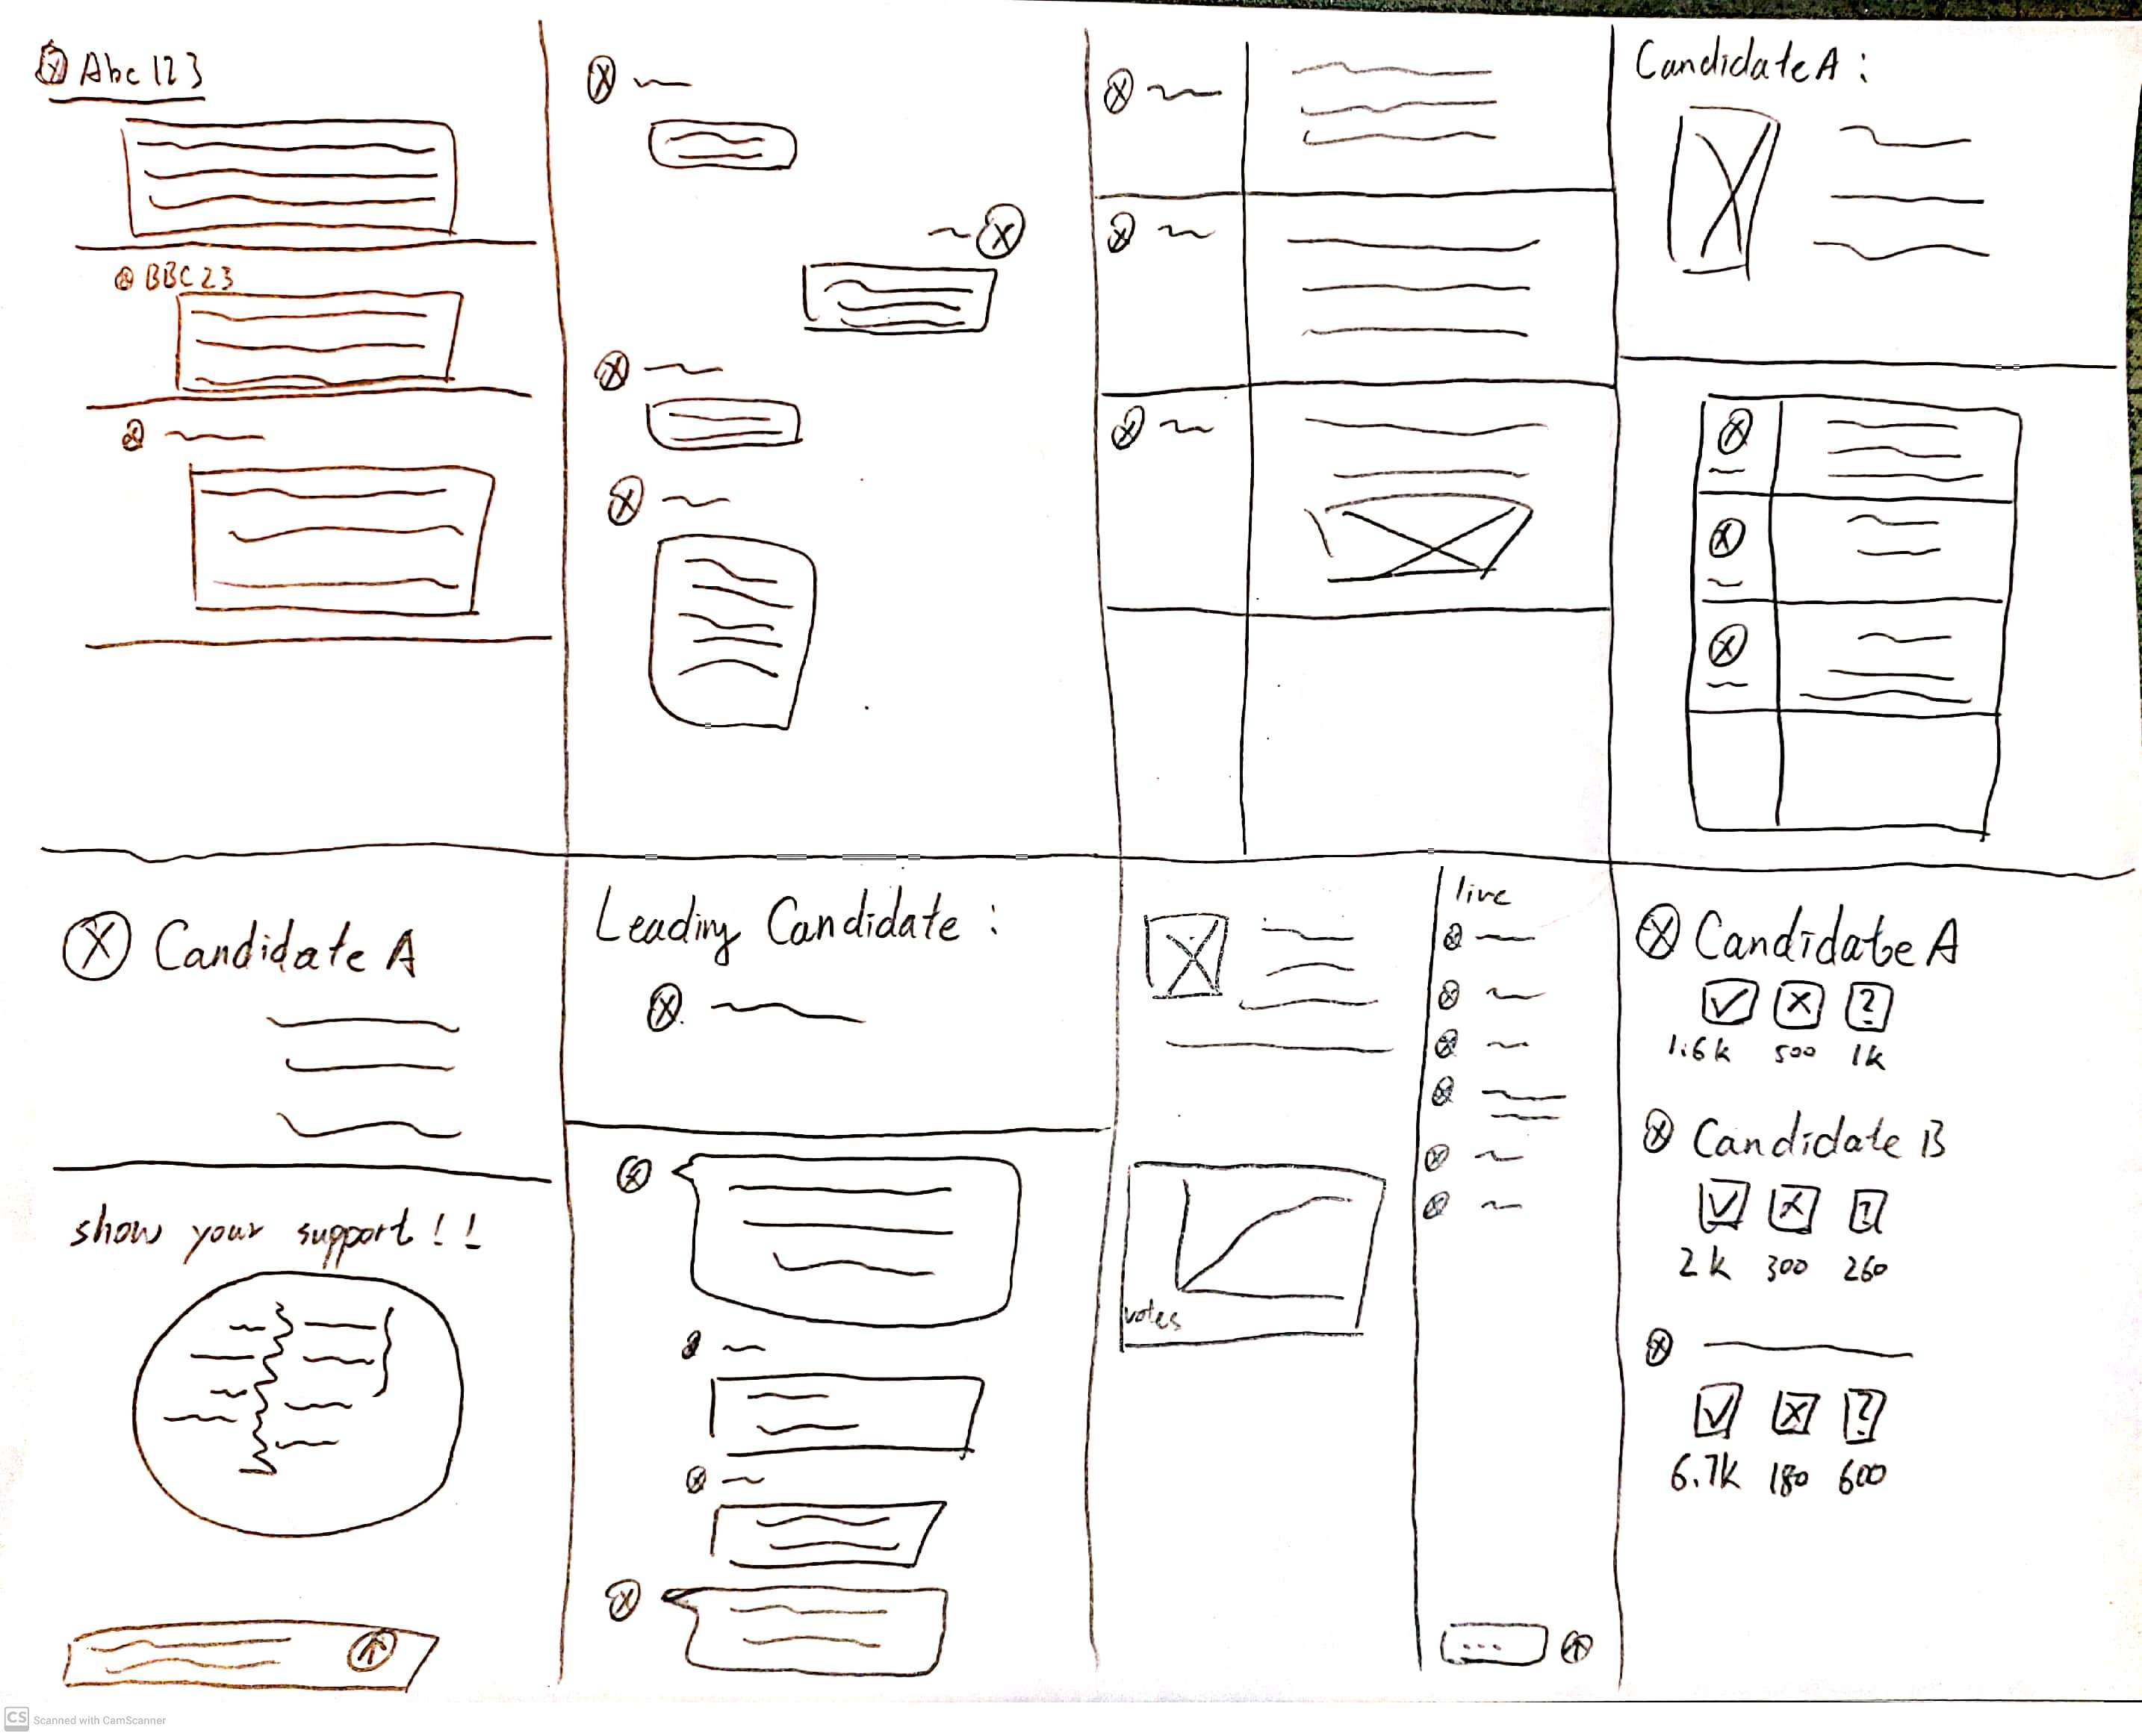 Abc123
BBC23
Candidate A :
Candidate A
show your support ! !
Leading Candidate :
votes
live
...
Candidate A
?
1.6k 500 1k
Candidate B
?
2k 300 260
?
6.7k 180 600
CS Scanned with CamScanner